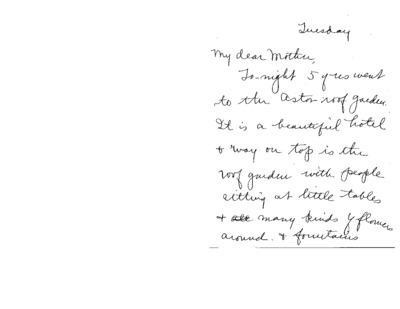 Tuesday
My dear Mother,
To-night 5 of us went
to the Astor roof garden.
It is a beautiful hotel
& 'way on top is the
roof garden with people
sitting at little tables
& many kinds of flowers
around. & fountains